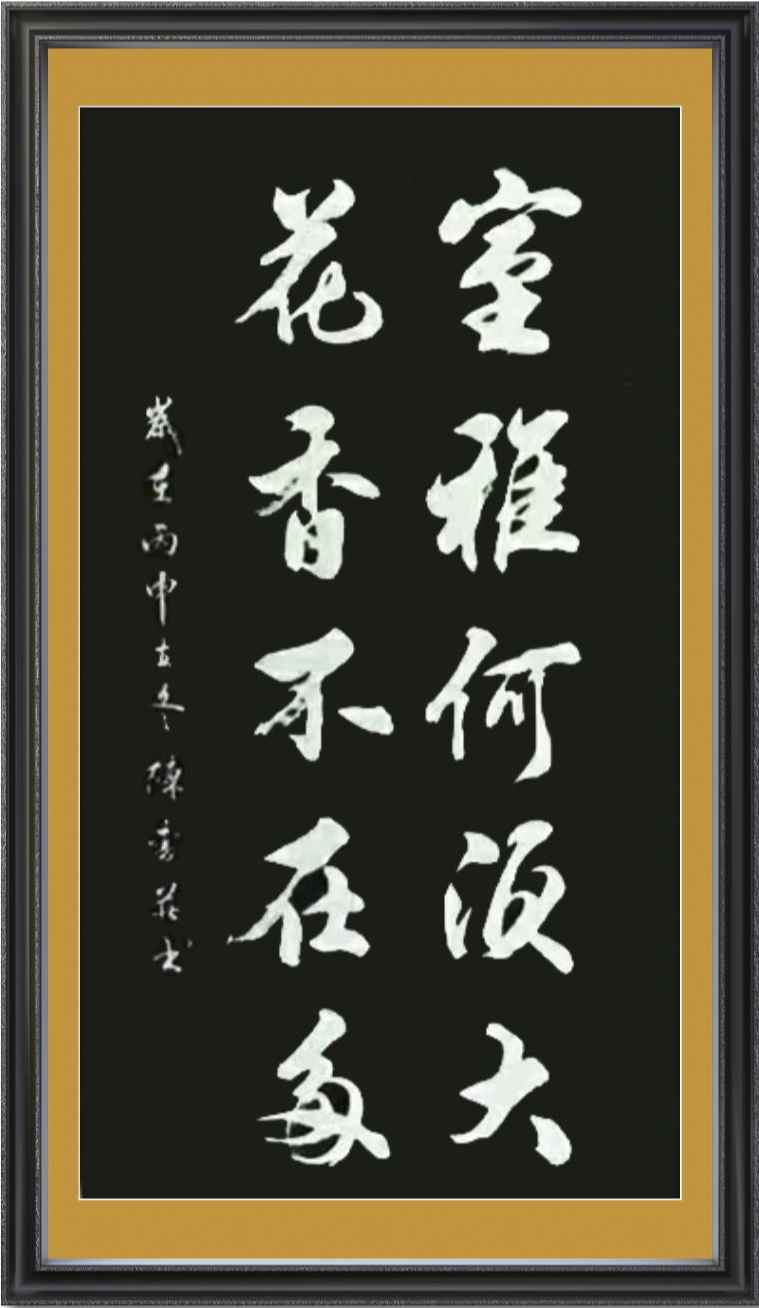 室雅何須大
花香不在多
歲在丙申立冬陳書